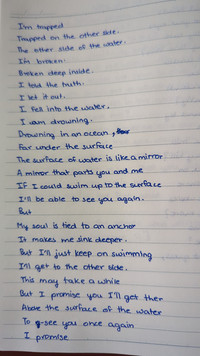 I'm trapped
Trapped on the other side.
The other side of the water.
I'm broken.
Broken deep inside.
I told the truth.
I let it out.
I fell into the water.
I am drowning.
Drowning in an ocean,
Far under the surface
The surface of water is like a mirror
A mirror that parts you and me
If I could swim up to the surface
I'll be able to see you again.
But
My soul is tied to an anchor
It makes me sink deeper.
But I'll just keep on swimming
I'll get to the other side.
This may take a while
But I promise you I'll get ther
Above the surface of the water
To see you once again
I promise